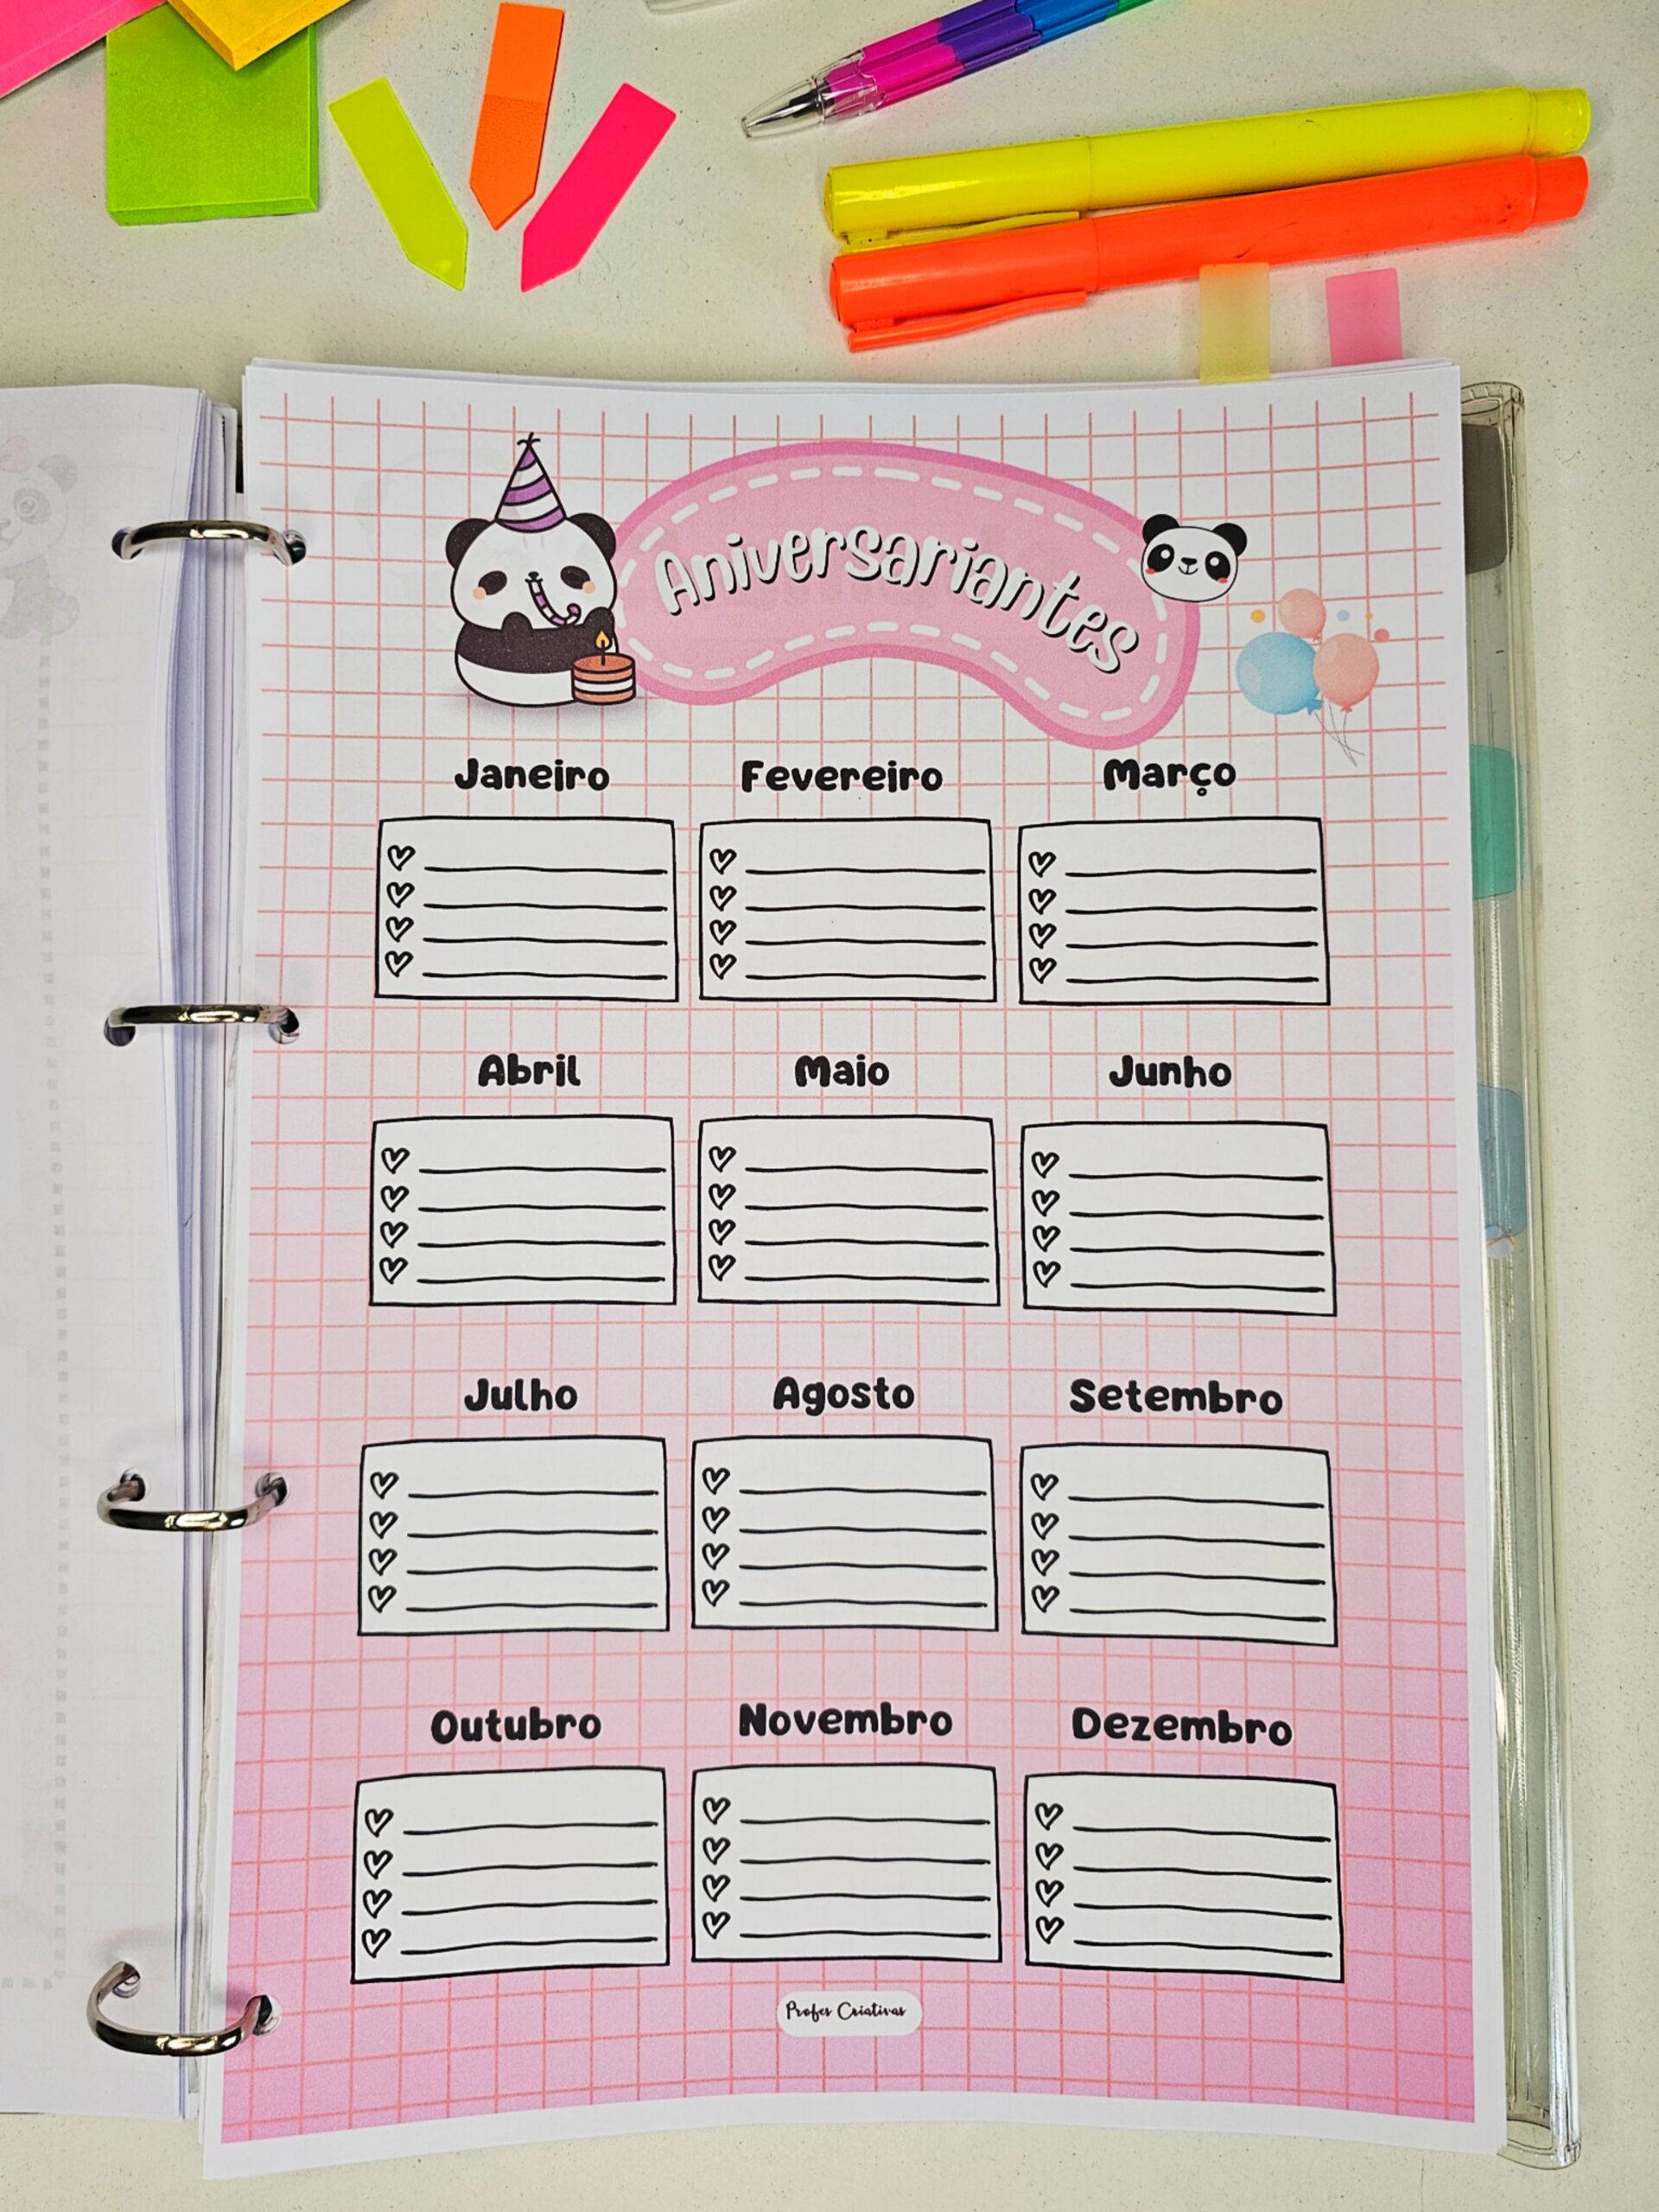 Aniversariantes
Janeiro Fevereiro Março
Abril Maio Junho
Julho Agosto Setembro
Outubro Novembro Dezembro
Profes Criativas